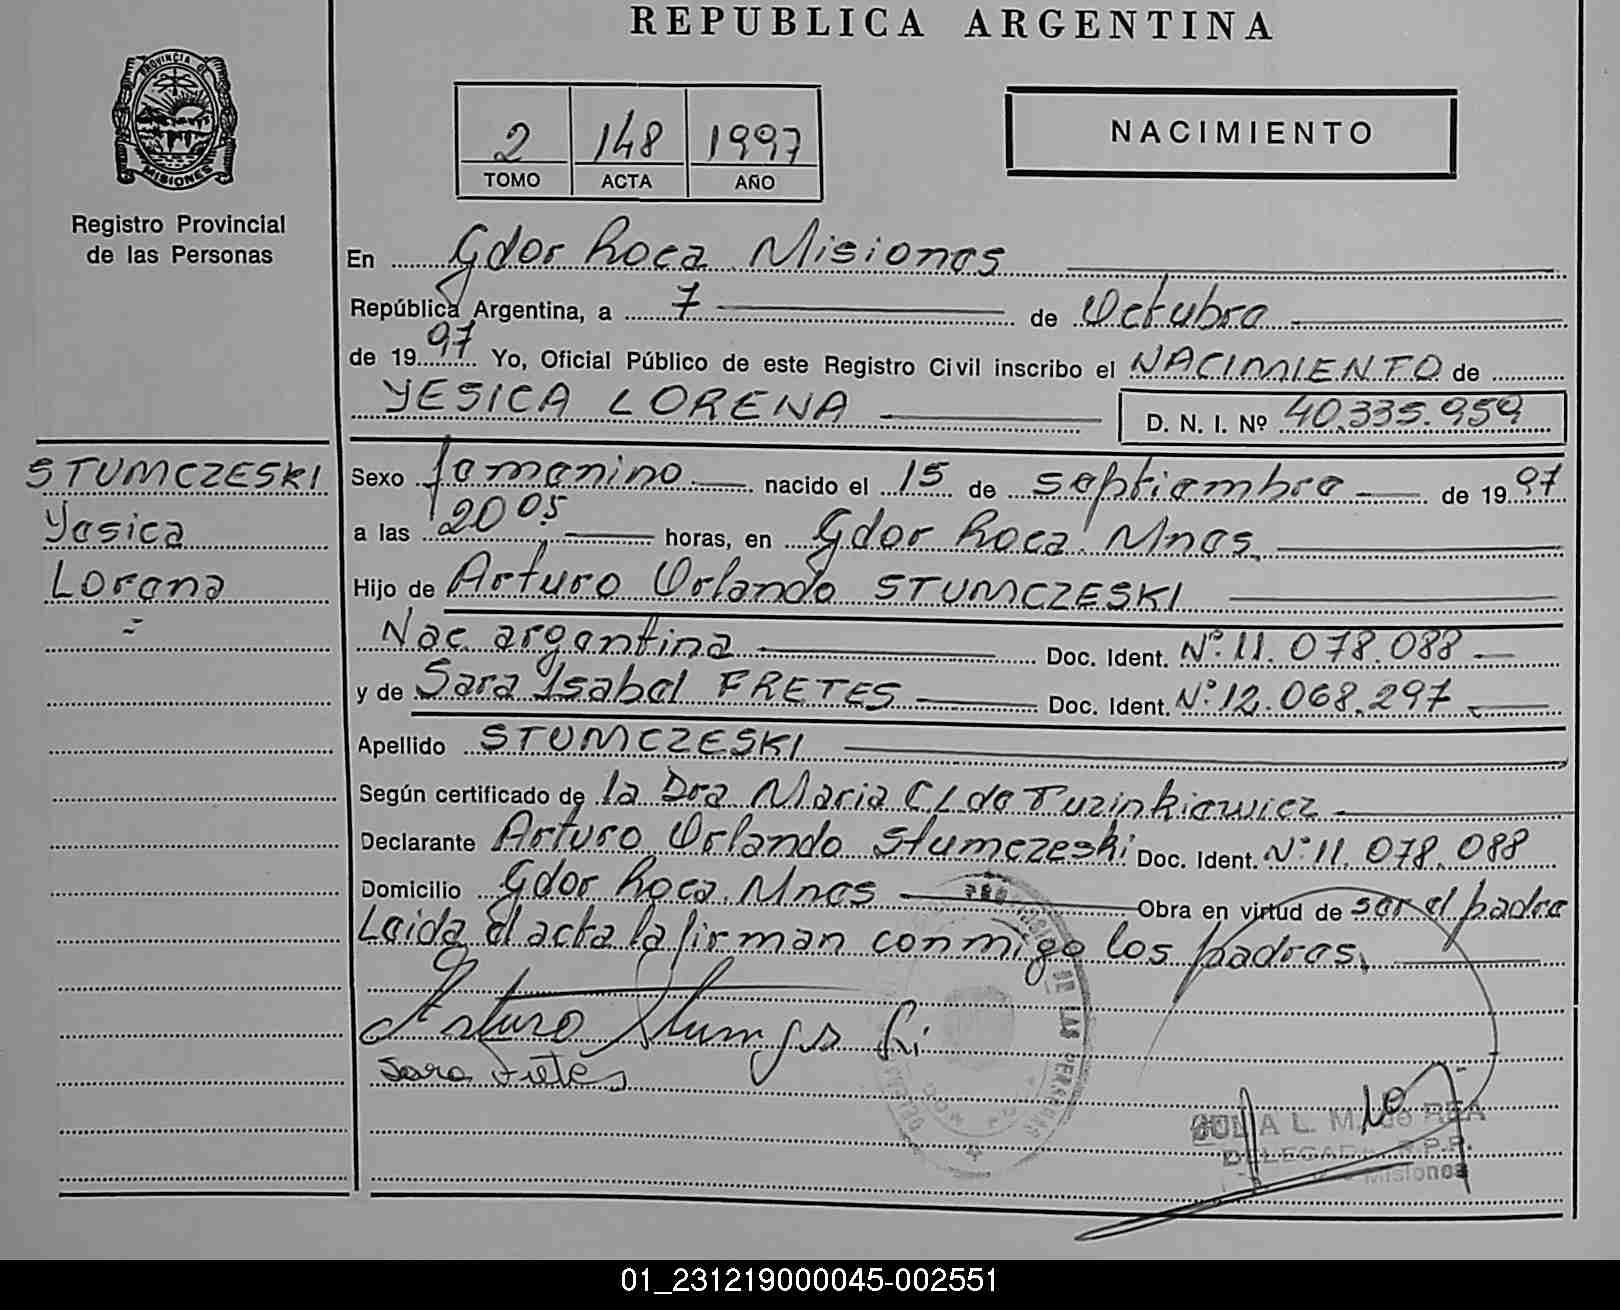 REPUBLICA ARGENTINA
PROVINCIA DE
MISIONES
Registro Provincial
de las Personas
2 148 1997
TOMO ACTA AÑO
NACIMIENTO
En Gdor Roca Misiones
República Argentina, a 7 de Octubre
de 1997 Yo, Oficial Público de este Registro Civil inscribo el NACIMIENTO de
YESICA LORENA D. N. I. Nº 40.335.959
STUMCZESKI
Yesica
Lorena
Sexo femenino nacido el 15 de septiembre de 1997
a las 20 05 horas, en Gdor Roca. Mnes.
Hijo de Arturo Orlando STUMCZESKI
Nac argentina Doc. Ident. Nº 11.078.088
y de Sara Ysabel FRETES Doc. Ident. Nº 12.068.297
Apellido STUMCZESKI
Según certificado de la Dra Maria C L de Tuzinkiewicz
Declarante Arturo Orlando Stumczeski Doc. Ident. Nº 11.078.088
Domicilio Gdor Roca. Mnes Obra en virtud de ser el padre
Leida el acta la firman conmigo los padres.
Arturo
Sara Fretes
DE LAS PERSONAS
L. M. de REA
DELEGADA R.P.P.
Misiones
01_231219000045-002551